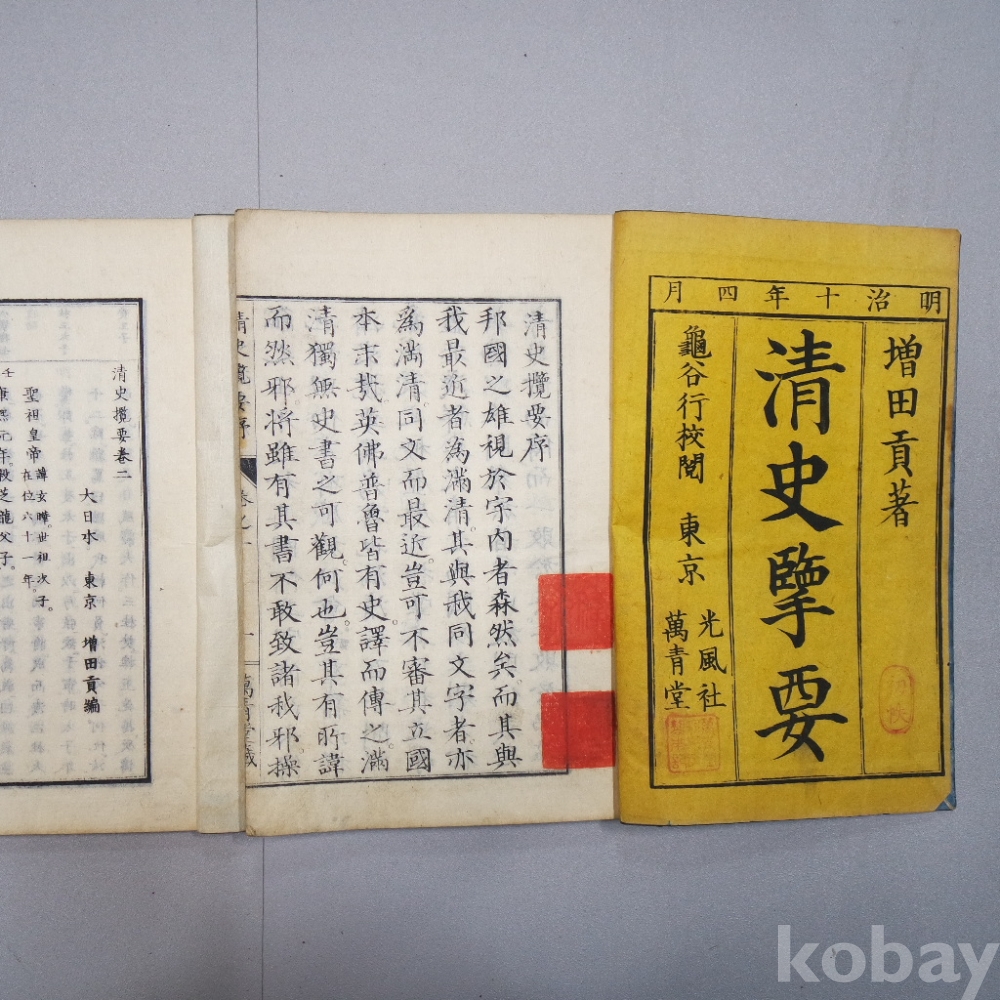 明治十年四月
増田貢著
清史擥要
龜谷行校閲 東京 光風社
萬青堂
清史攬要序
邦國之雄視於宇内者森然矣而其與
我最近者為滿清其與我同文字者亦
為滿清同文而最近豈可不審其立國
本末哉英佛普魯皆有史譯而傳之滿
清獨無史書之可觀何也豈其有所諱
而然邪將雖有其書不敢致諸我邪操
清史攬要序 卷之一 一 萬青堂藏
清史攬要卷二
大日本 東京 増田貢編
聖祖皇帝 諱玄曄世祖次子
在位六十一年
kobay